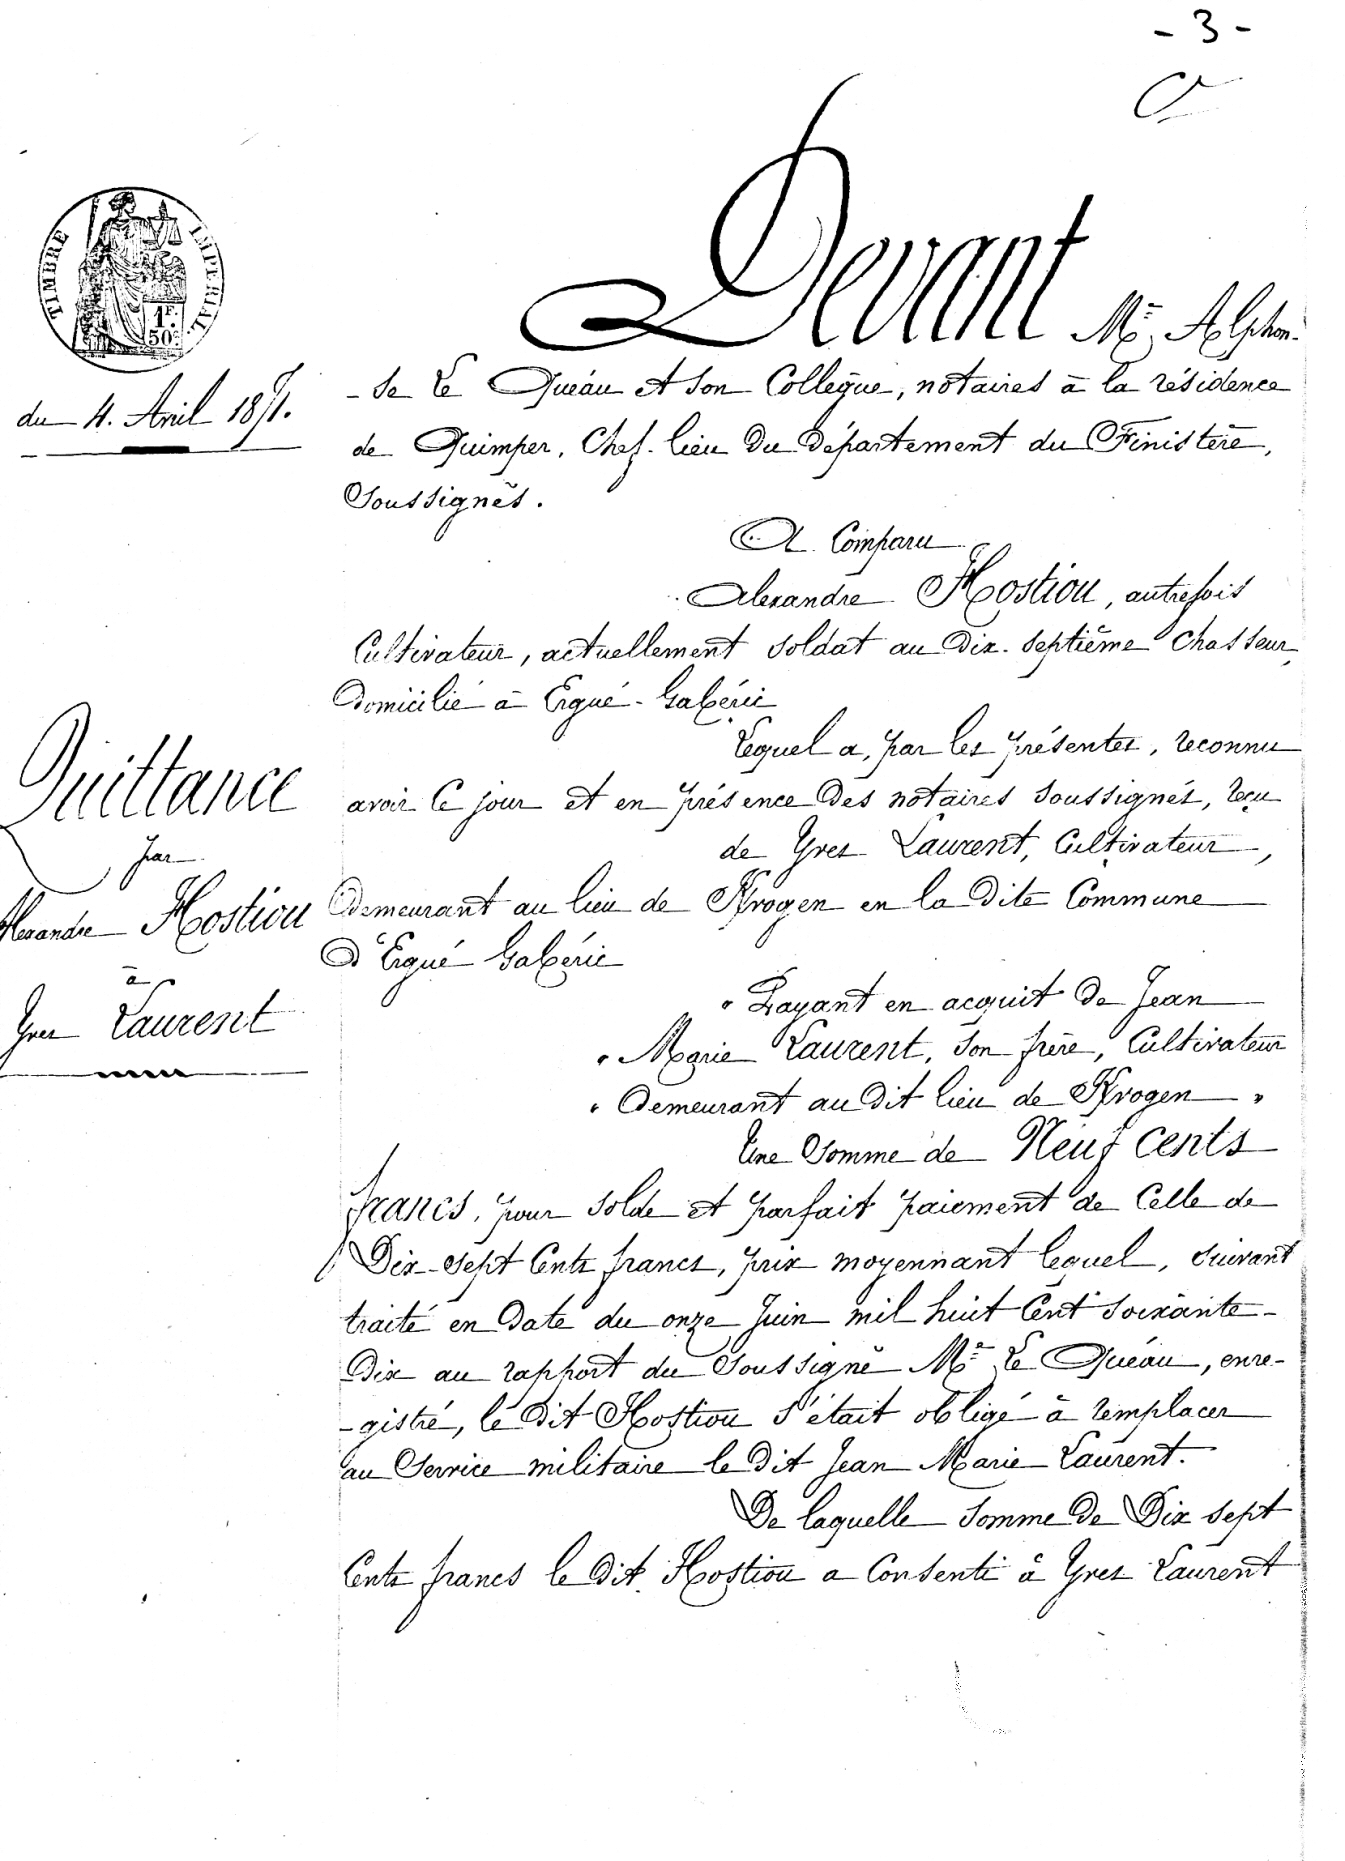 - 3 -
TIMBRE IMPERIAL
1F.
50c.
Devant Me Alphon-
-se Le Quéau et son Collègue, notaires à la résidence
de Quimper, Chef-lieu Du Département du Finistère,
Soussignés.
du 4. Avril 1871.
A Comparu
Alexandre Hostiou, autrefois
Cultivateur, actuellement soldat au Dix-septième Chasseur,
Domicilié à Ergué-Gabéric
Lequel a, par les présentes, reconnu
avoir Ce jour et en présence Des notaires soussignés, reçu
de Yves Laurent, Cultivateur,
Demeurant au lieu de Krogen en la Dite Commune
D'Ergué Gabéric
Quittance
par
Alexandre Hostiou
à
Yves Laurent
" Payant en acquit De Jean
" Marie Laurent, Son frère, Cultivateur
" Demeurant au Dit lieu de Krogen "
Une Somme de Neuf Cents
francs, pour solde et parfait paiement de Celle de
Dix-sept Cents francs, prix moyennant lequel, Suivant
traité en Date du onze Juin mil huit Cent soixante-
Dix au rapport du Soussigné Me Le Quéau, enre-
-gistré, le Dit Hostiou s'était obligé à remplacer
au Service militaire le Dit Jean Marie Laurent.
De laquelle Somme De Dix sept
Cents francs le Dit Hostiou a Consenti à Yves Laurent